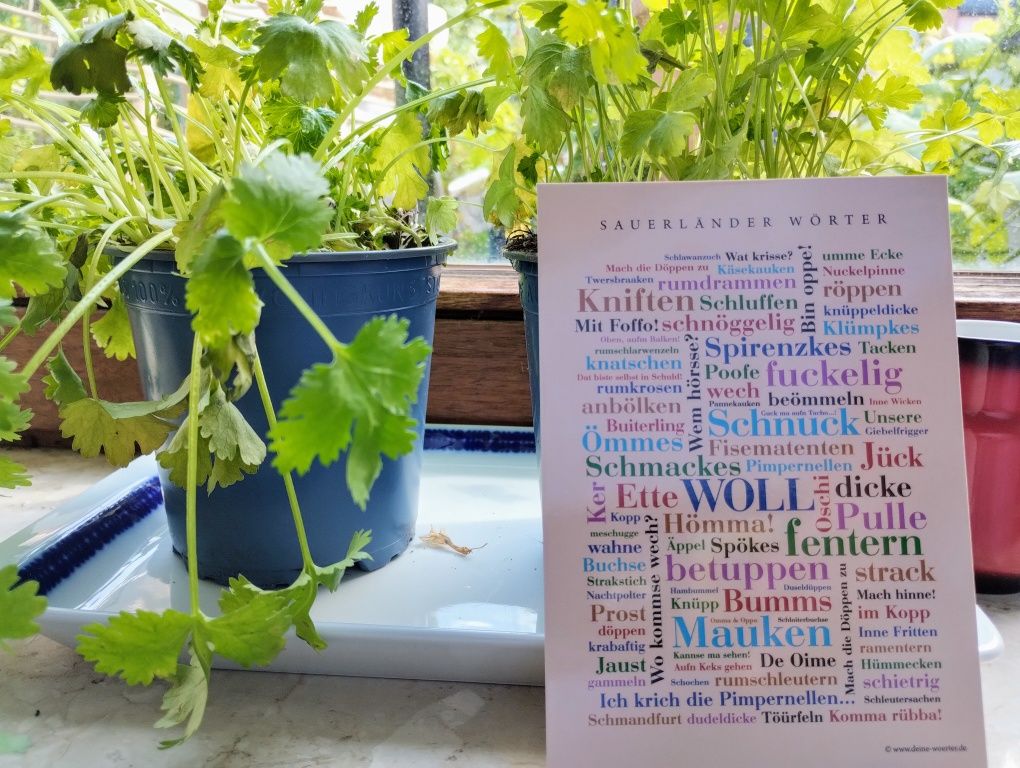 100%
SAUERLÄNDER WÖRTER
Schlawanzuch Wat krisse?
Bin oppe!
umme Ecke
Mach die Döppen zu Käsekauken
Nuckelpinne
Twersbraaken rumdrammen
röppen
Kniften Schluffen
knüppeldicke
Mit Foffo! schnöggelig
Klümpkes
Oben, aufm Balken!
Wem hörsse?
Spirenzkes Tacken
rumschlarwenzeln
knatschen
Poofe fuckelig
Dat biste selbst in Schuld!
rumkrosen
wech
Pannekauken
beömmeln Inne Wicken
anbölken
Guck ma aufn Tacho...!
Schnuck Unsere
Buiterling
Giebelfrigger
Ömmes Fisematenten Jück
Schmackes Pimpernellen
Ker Ette WOLL Oschi dicke
Pulle
Kopp Hömma!
meschugge
fentern
wahne
Wo kommse wech?
Äppel Spökes
Buchse betuppen strack
Strakstich
Hambummel Duseldüppen
Mach die Döppen zu
Mach hinne!
Nachtpolter Knüpp Bumms
Prost im Kopp
Omma & Oppa Schloiterbuchse
döppen Mauken Inne Fritten
krabaftig ramentern
Kannse ma sehen! De Oime
Jaust Aufn Keks gehen Hümmecken
gammeln Schochen rumschleutern schietrig
Ich krich die Pimpernellen... Schleutersachen
Schmandfurt dudeldicke Töürfeln Komma rübba!
© www.deine-woerter.de